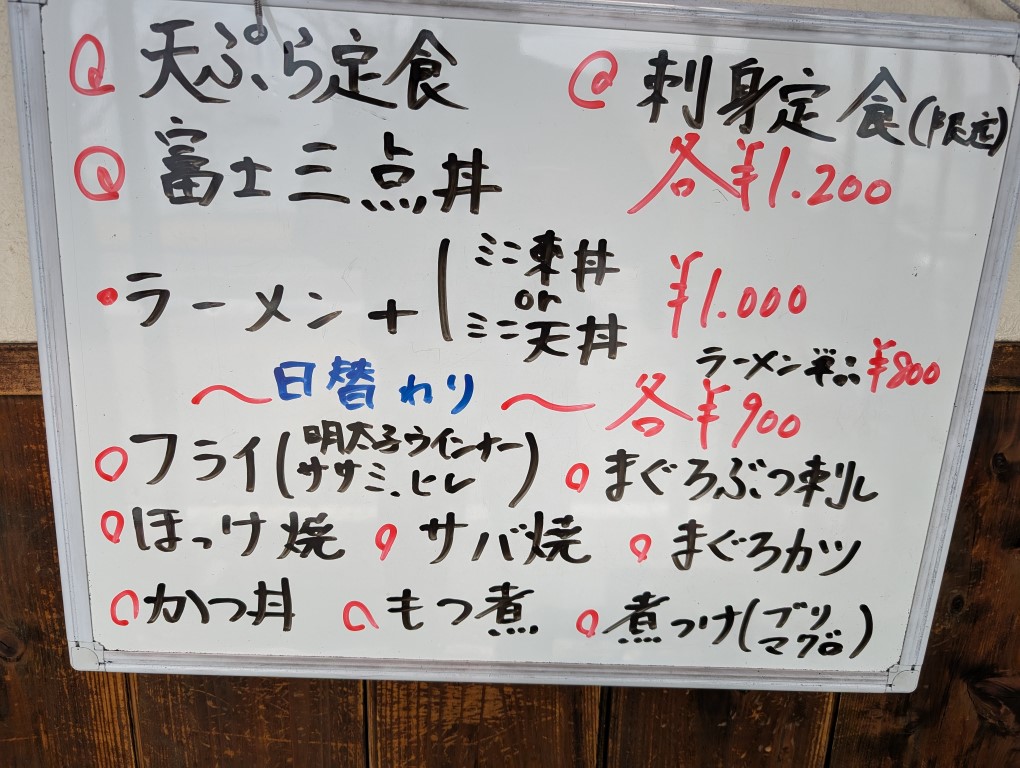 天ぷら定食
刺身定食(限定)
富士三点丼
各¥1.200
・ラーメン+(ミニ東丼
or
ミニ天丼
¥1.000
ラーメン単品¥800
〜日替わり〜各¥900
○フライ(明太子ウインナー
ササミ、ヒレ)
○まぐろぶつ刺し
○ほっけ焼 ○サバ焼 ○まぐろカツ
○かつ丼 ○もつ煮 ○煮つけ(ブリ
マグロ)